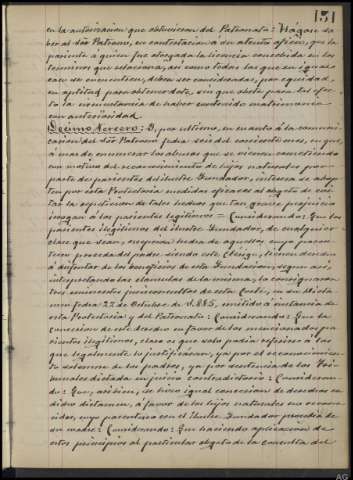 151
en la autorización que obtuvieron del Patronato: Hágase sa-
ber al Sor Patrono, en contestación á su atento oficio, que la
parienta á quien fue otorgada la licencia concebida en los
términos que relaciona, así como todas las que en igual
caso se encuentren, deben ser consideradas, por equidad,
en aptitud para obtener dote, sin que obste para tal efec-
to la circunstancia de haber contraido matrimonio
con anterioridad.
Decimo tercero: Y, por último, en cuanto á la comuni-
cación del Sor Patrono fecha seis del corriente mes, en que,
á mas de enumerar los abusos que se vienen cometiendo
con motivo del reconocimiento de hijos naturales por
parte de parientes del ilustre Fundador, interesa se adop-
ten por esta Protectoría medidas eficaces al objeto de evi-
tar la repetición de tales hechos que tan grave perjuicio
irrogan á los parientes legítimos = Considerando: Que los
parientes ilegítimos del ilustre Fundador, de cualquier
clase que sean, excepción hecha de aquellos cuyo paren-
tesco proceda del padre siendo este Clérigo, tienen derecho
á disfrutar de los beneficios de esta Fundación, segun así,
interpretando las cláusulas de la misma, lo consignaron
tres eminentes jurisconsultos de esta Corte, en su dictá-
men fecha 22 de Octubre de 1.885, emitido á instancia de
esta Protectoría y del Patronato: Considerando: Que la
concesion de este derecho en favor de los mencionados pa-
rientes ilegítimos, claro es que solo podia referirse á los
que legalmente lo justificaran, ya por el reconocimien-
to solemne de los padres, ya por sentencia de los Tri-
bunales dictada en juicio contradictorio: Consideran-
do: Que, asi bien, se hizo igual concesion de derechos en
dicho dictámen, á favor de los hijos naturales no recono-
cidos, cuyo parentesco con el ilustre Fundador procedía de
su madre: Considerando: Que haciendo aplicación de
estos principios al particular objeto de la consulta del
AG